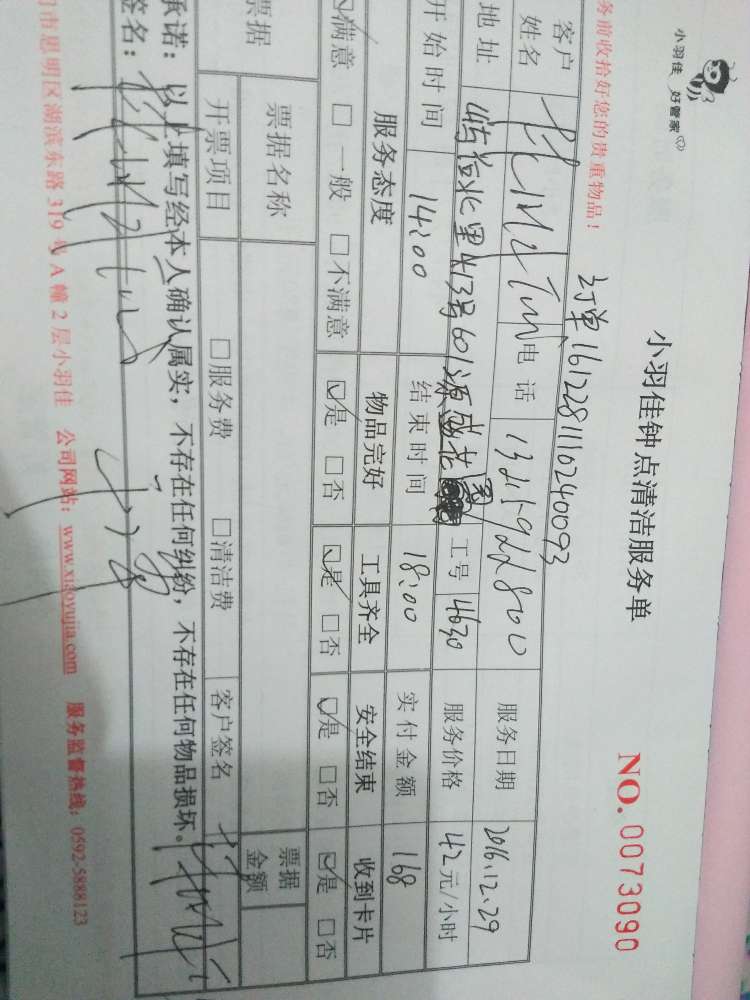 小羽佳 好管家
小羽佳钟点清洁服务单
NO. 0073090
务前收拾好您的贵重物品！
订单1612281110240093
客户姓名 电话 服务日期 2016.12.29
地址 北里413号601源盛花园 工号 4630 服务价格 42元/小时
开始时间 14:00 结束时间 18:00 实付金额 168
服务态度 物品完好 工具齐全 安全结束 收到卡片
☑满意 □一般 □不满意 ☑是 □否 ☑是 □否 ☑是 □否 ☑是 □否
票据 票据名称 票据金额
开票项目 □服务费 □清洁费 客户签名
承诺：以上填写经本人确认属实，不存在任何纠纷，不存在任何物品损坏。
签名：
门市思明区湖滨东路 319 号 A 幢 2 层小羽佳 公司网站：www.xiaoyujia.com 服务监督热线：0592-5888123